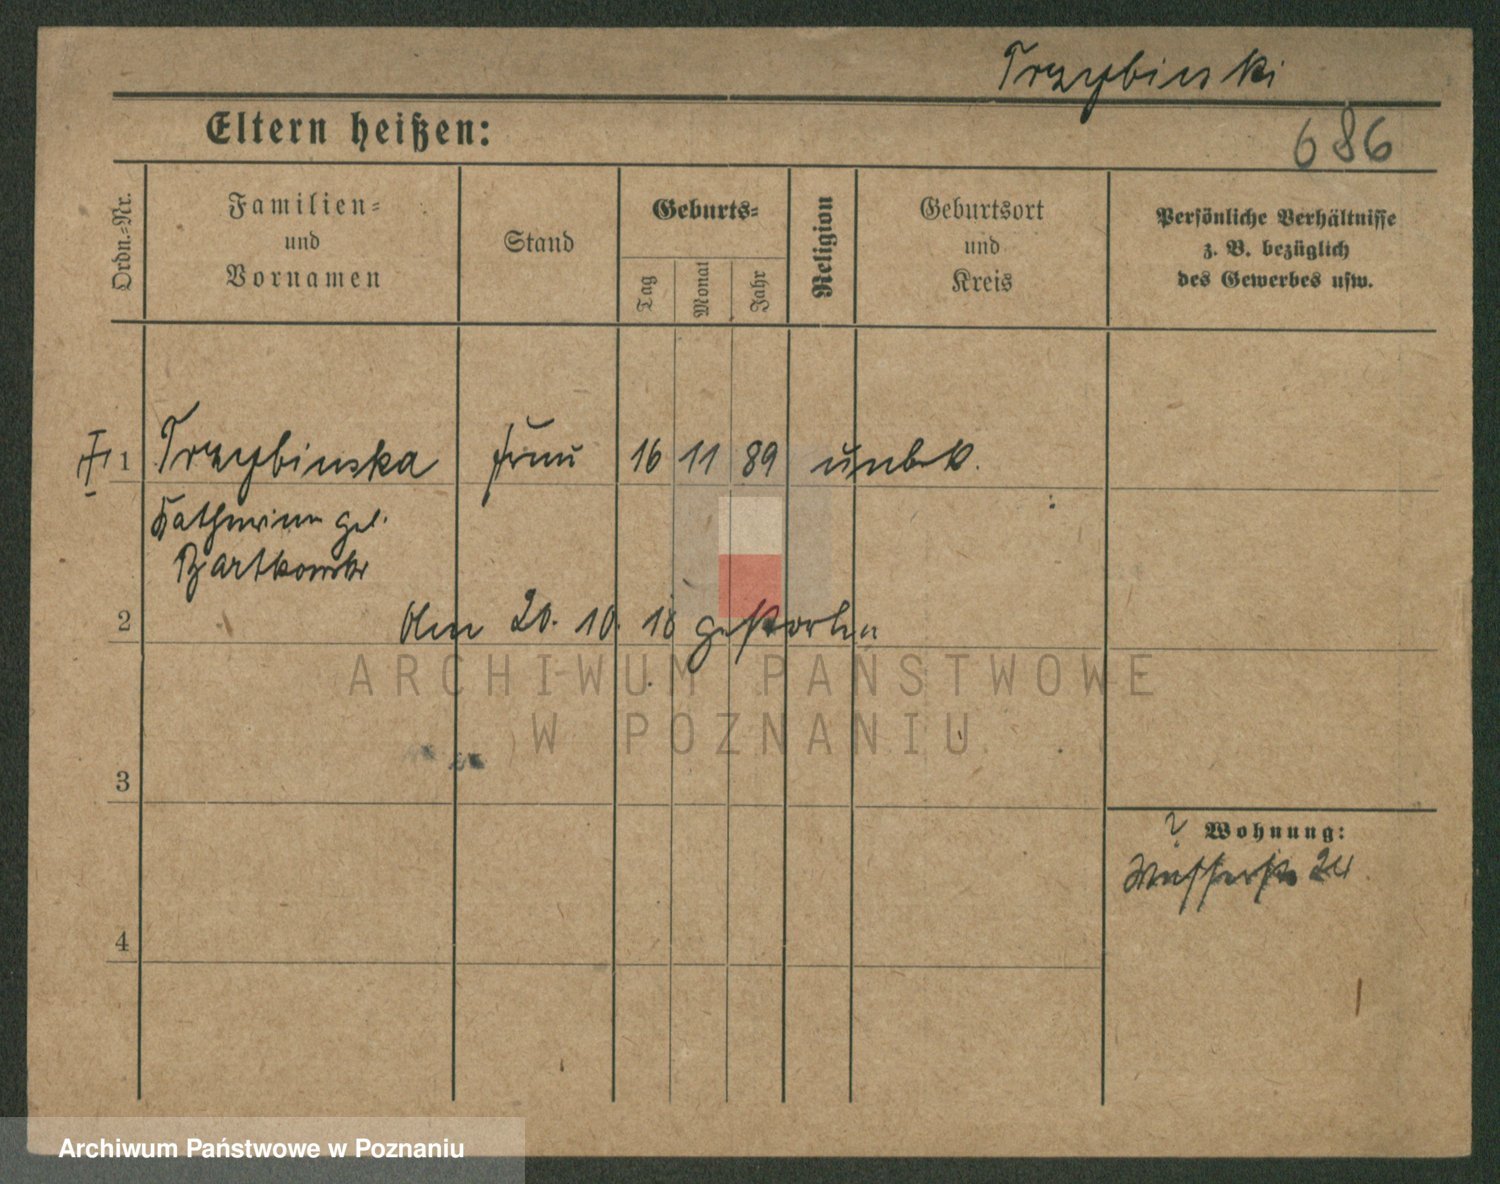 Trzybinski
Eltern heißen:
686
Ordn.-Nr.
Familien-
und
Vornamen
Stand
Geburts-
Tag
Monat
Jahr
Religion
Geburtsort
und
Kreis
Persönliche Verhältnisse
z. B. bezüglich
des Gewerbes usw.
1 Trzybinska Frau 16 11 89 unbek.
Katharina geb.
Bartkowska
2
Am 20. 10. 18 gestorben
ARCHIWUM PAŃSTWOWE
W POZNANIU
3
? Wohnung:
Wasserstr. 24
4
Archiwum Państwowe w Poznaniu